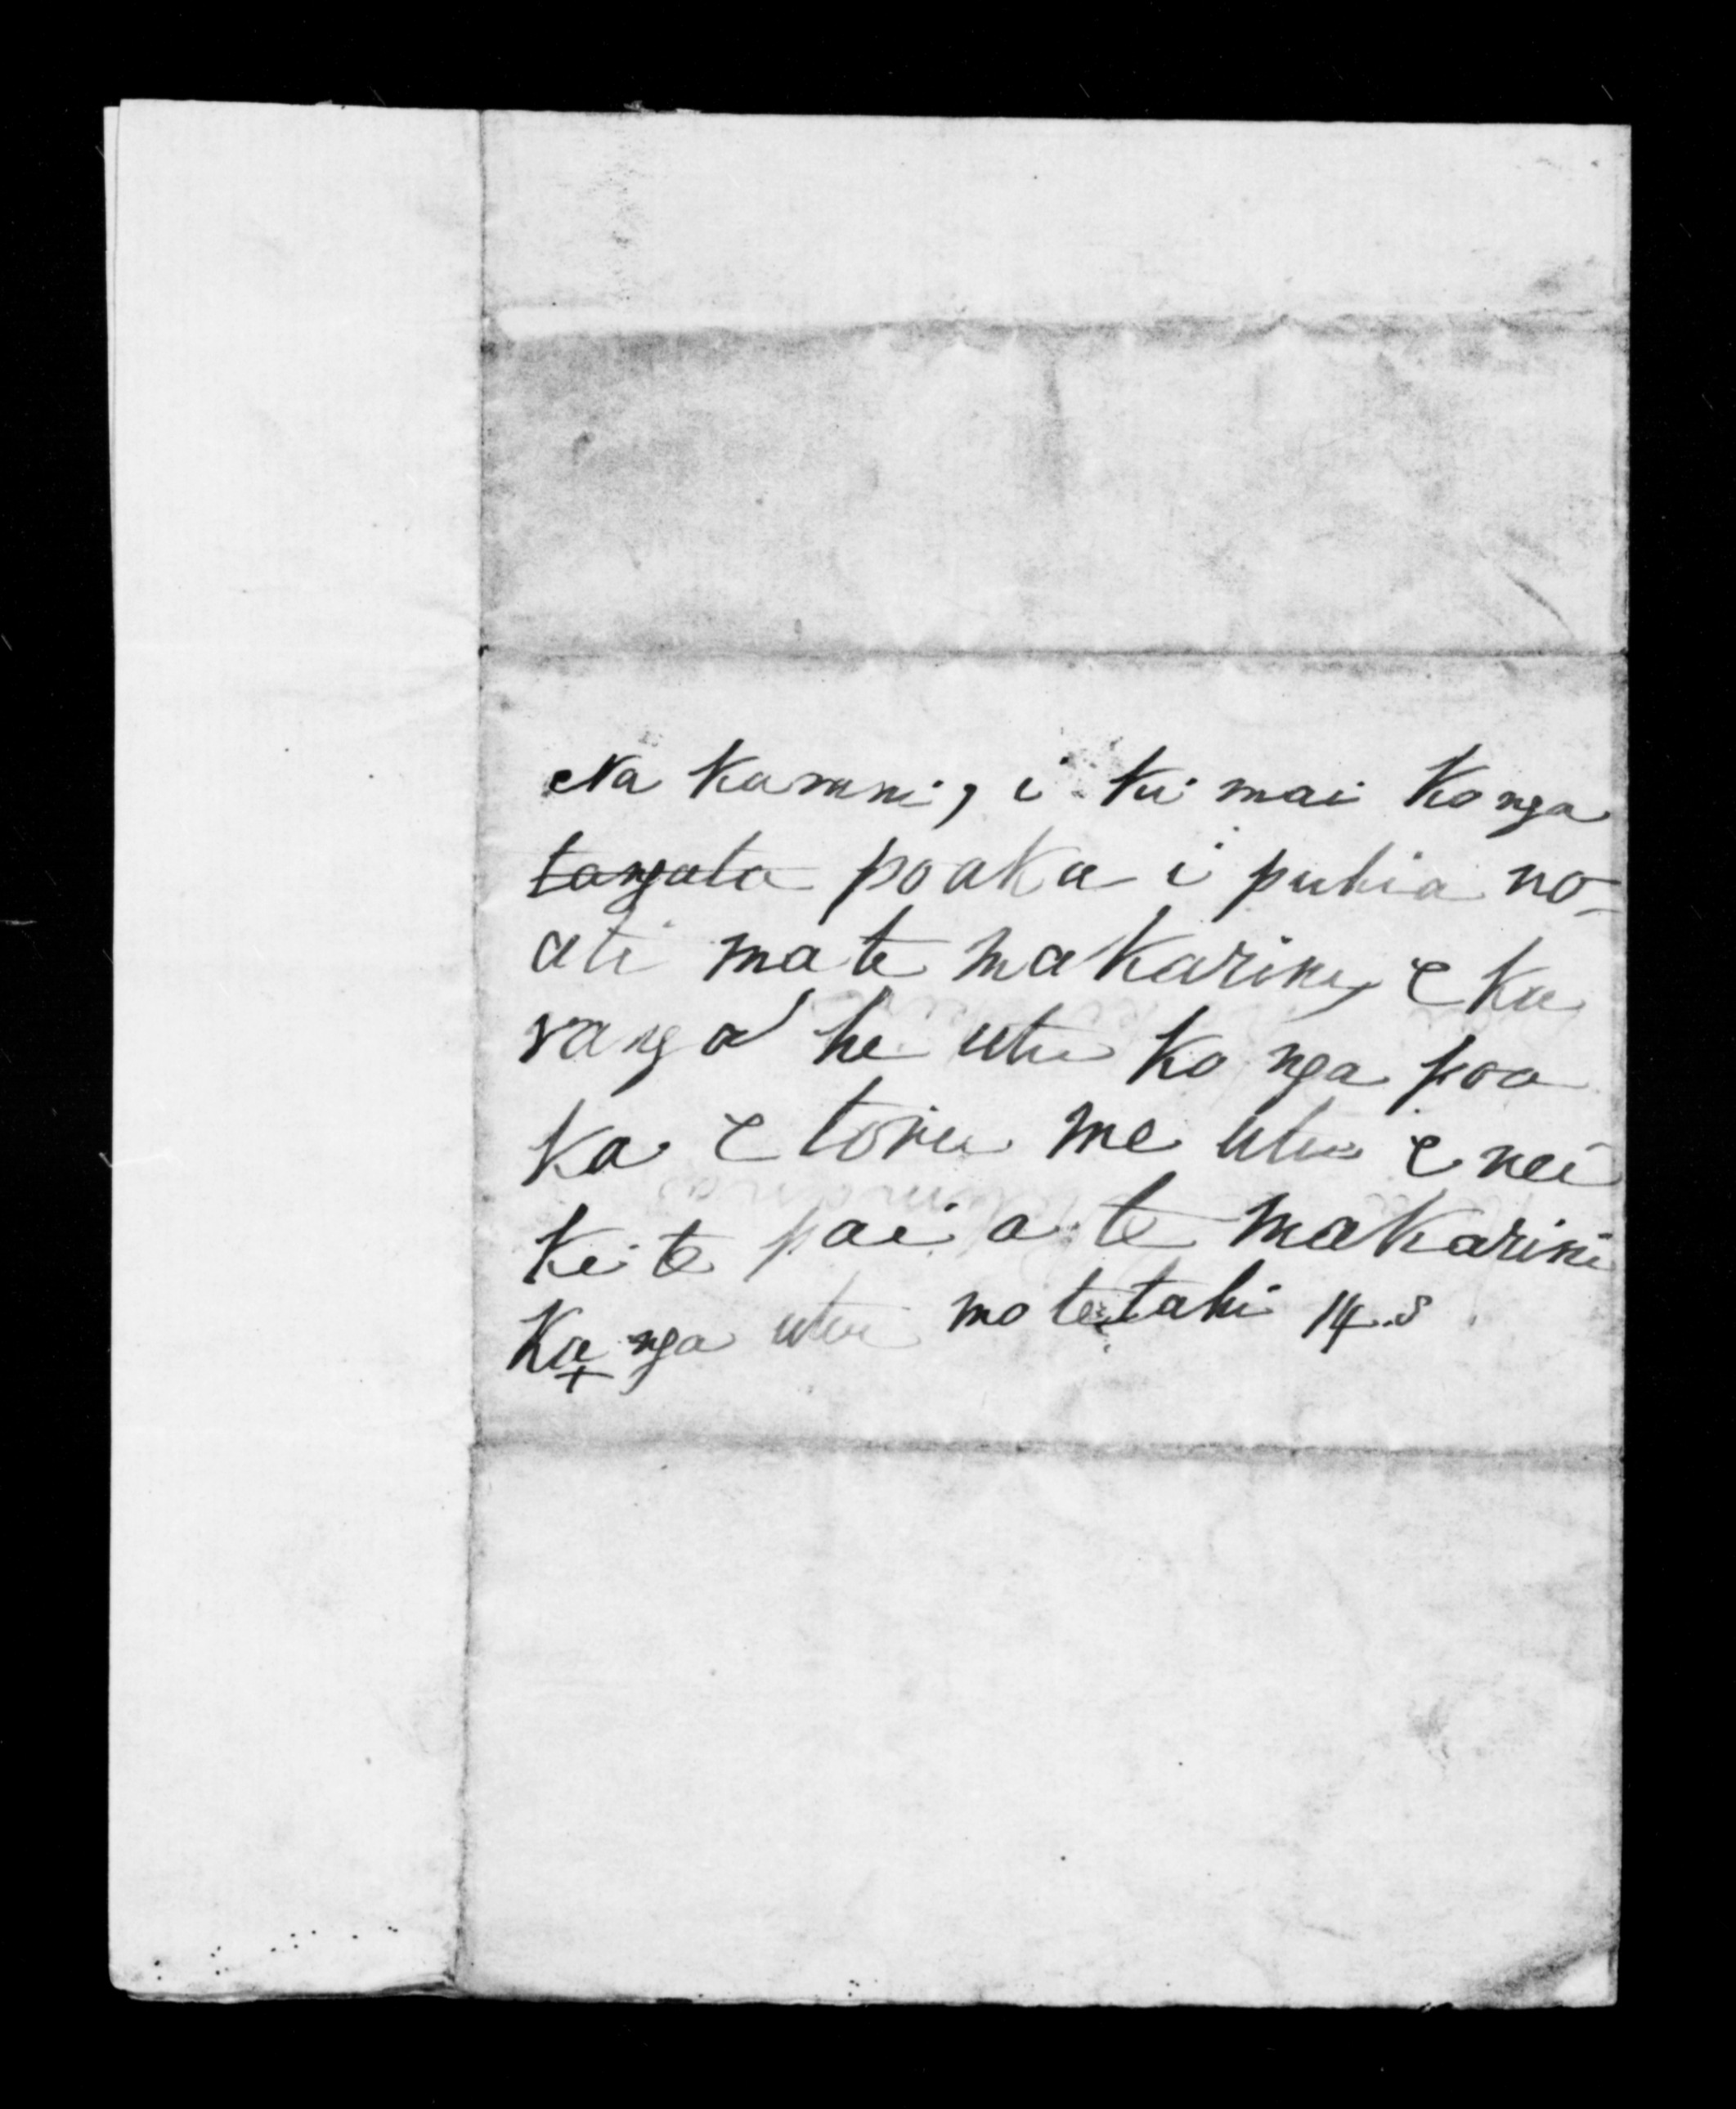 Na Karuni, i ki mai Ko nga
tangata poaka i puhia no-
ati ma te makarini, e ka
ranga he utu ko nga poa
ka e toru me utu e nei
kei te pai a te makarini
Ka nga utu mo te tahi 14.s